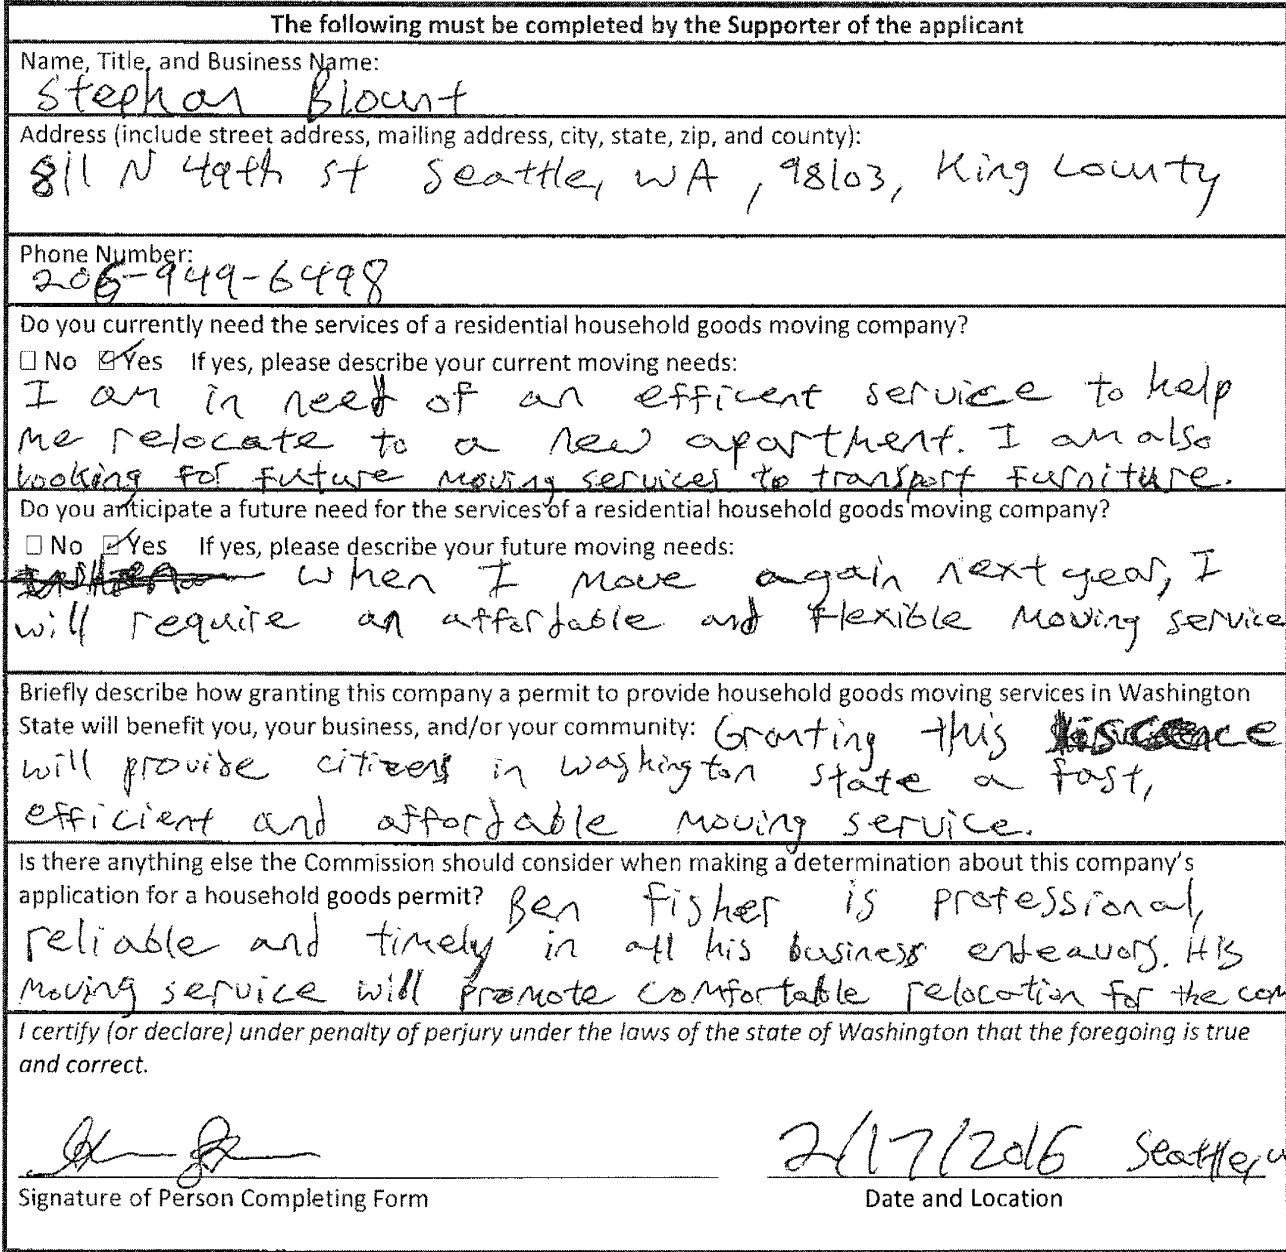 The following must be completed by the Supporter of the applicant
Name, Title, and Business Name:
Stephan Blount
Address (include street address, mailing address, city, state, zip, and county):
811 N 49th st Seattle, WA , 98103, King County
Phone Number:
206-949-6498
Do you currently need the services of a residential household goods moving company?
☐ No ☑ Yes If yes, please describe your current moving needs:
I am in need of an efficent service to help
me relocate to a new apartment. I am also
looking for future moving services to transport furniture.
Do you anticipate a future need for the services of a residential household goods moving company?
☐ No ☑ Yes If yes, please describe your future moving needs:
When I move again next year, I
will require an affordable and flexible moving service
Briefly describe how granting this company a permit to provide household goods moving services in Washington
State will benefit you, your business, and/or your community: Granting this
will provide citizens in washington state a fast,
efficient and affordable moving service.
Is there anything else the Commission should consider when making a determination about this company's
application for a household goods permit? Ben Fisher is professional,
reliable and timely in all his business endeavors. His
moving service will promote comfortable relocation for the com
I certify (or declare) under penalty of perjury under the laws of the state of Washington that the foregoing is true
and correct.
2/17/2016 Seattle, W
Signature of Person Completing Form Date and Location